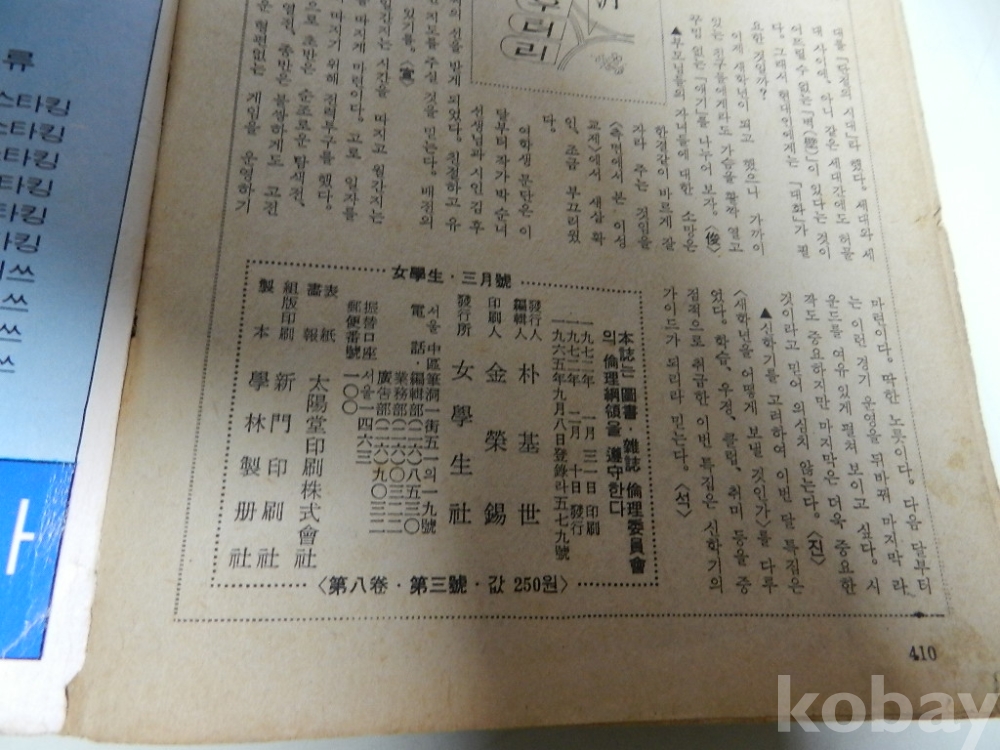 대를 「단절의 시대」라 했다. 세대와 세
대 사이에, 아니 같은 세대간에도 허물
어뜨릴 수 없는 「벽(壁)」이 있다는 것이
다. 그래서 현대인에게는 「대화」가 필
요한 것일까?
이제 새학년이 되고 했으니 가까이
있는 친구들에게라도 가슴을 활짝 열고
꾸밈 없는 「얘기」를 나누어 보자. 〈俊〉
▲부모님들의 자녀들에 대한 소망은
한결같이 바르게 잘
자라 주는 것임을
〈측면에서 본 이성
교제〉에서 새삼 확
인, 조금 부끄러웠
다.
여학생 문단은 이
달부터 작가 박순녀
선생님과 시인 김후
의 선을 받게 되었다. 친절하고 유
지도를 주실 것을 믿는다. 배전의
있기를. 〈宣〉
간지는 시간을 따지고 월간지는
를 따지게 마련이다. 고로 일자를
따지기 위해 전력투구를 했다.
으로 초반은 순조로운 탐색전,
영전, 종반은 불쌍하게도 고전
운 형편없는 게임을 운영하기
마련이다. 딱한 노릇이다. 다음 달부터
는 이런 경기 운영을 뒤바꿔 마지막 라
운드를 여유 있게 펼쳐 보이고 싶다. 시
작도 중요하지만 마지막은 더욱 중요한
것이라고 믿어 의심치 않는다. 〈진〉
▲신학기를 고려하여 이번 달 특집은
〈새학년을 어떻게 보낼 것인가〉를 다루
었다. 학습, 우정, 클럽, 취미 등을 중
점적으로 취급한 이번 특집은 신학기의
가이드가 되리라 믿는다. 〈석〉
女學生·三月號
本誌는 圖書·雜誌 倫理委員會
의 倫理綱領을 遵守한다
一九七二年 一月 三一日 印刷
一九七二年 二月 十日 發行
一九六五年九月八日登錄라五七九號
發行人
編輯人 朴基世
印刷人 金榮錫
發行所 女學生社
서울 中區筆洞一街五一의一九號
電話 編輯部(二六)八五三〇
業務部(二六)〇三二二
廣告部(二六)九〇三二
振替口座 서울一四六三
郵便番號 一〇〇
表紙
畵報 太陽堂印刷株式會社
組版印刷 新門印刷社
製本 學林製册社
〈第八卷·第三號·값 250원〉
410
우리리
류
스타킹
스타킹
스타킹
타킹
타킹
타킹
쓰
쓰
쓰
쓰
사
kobay